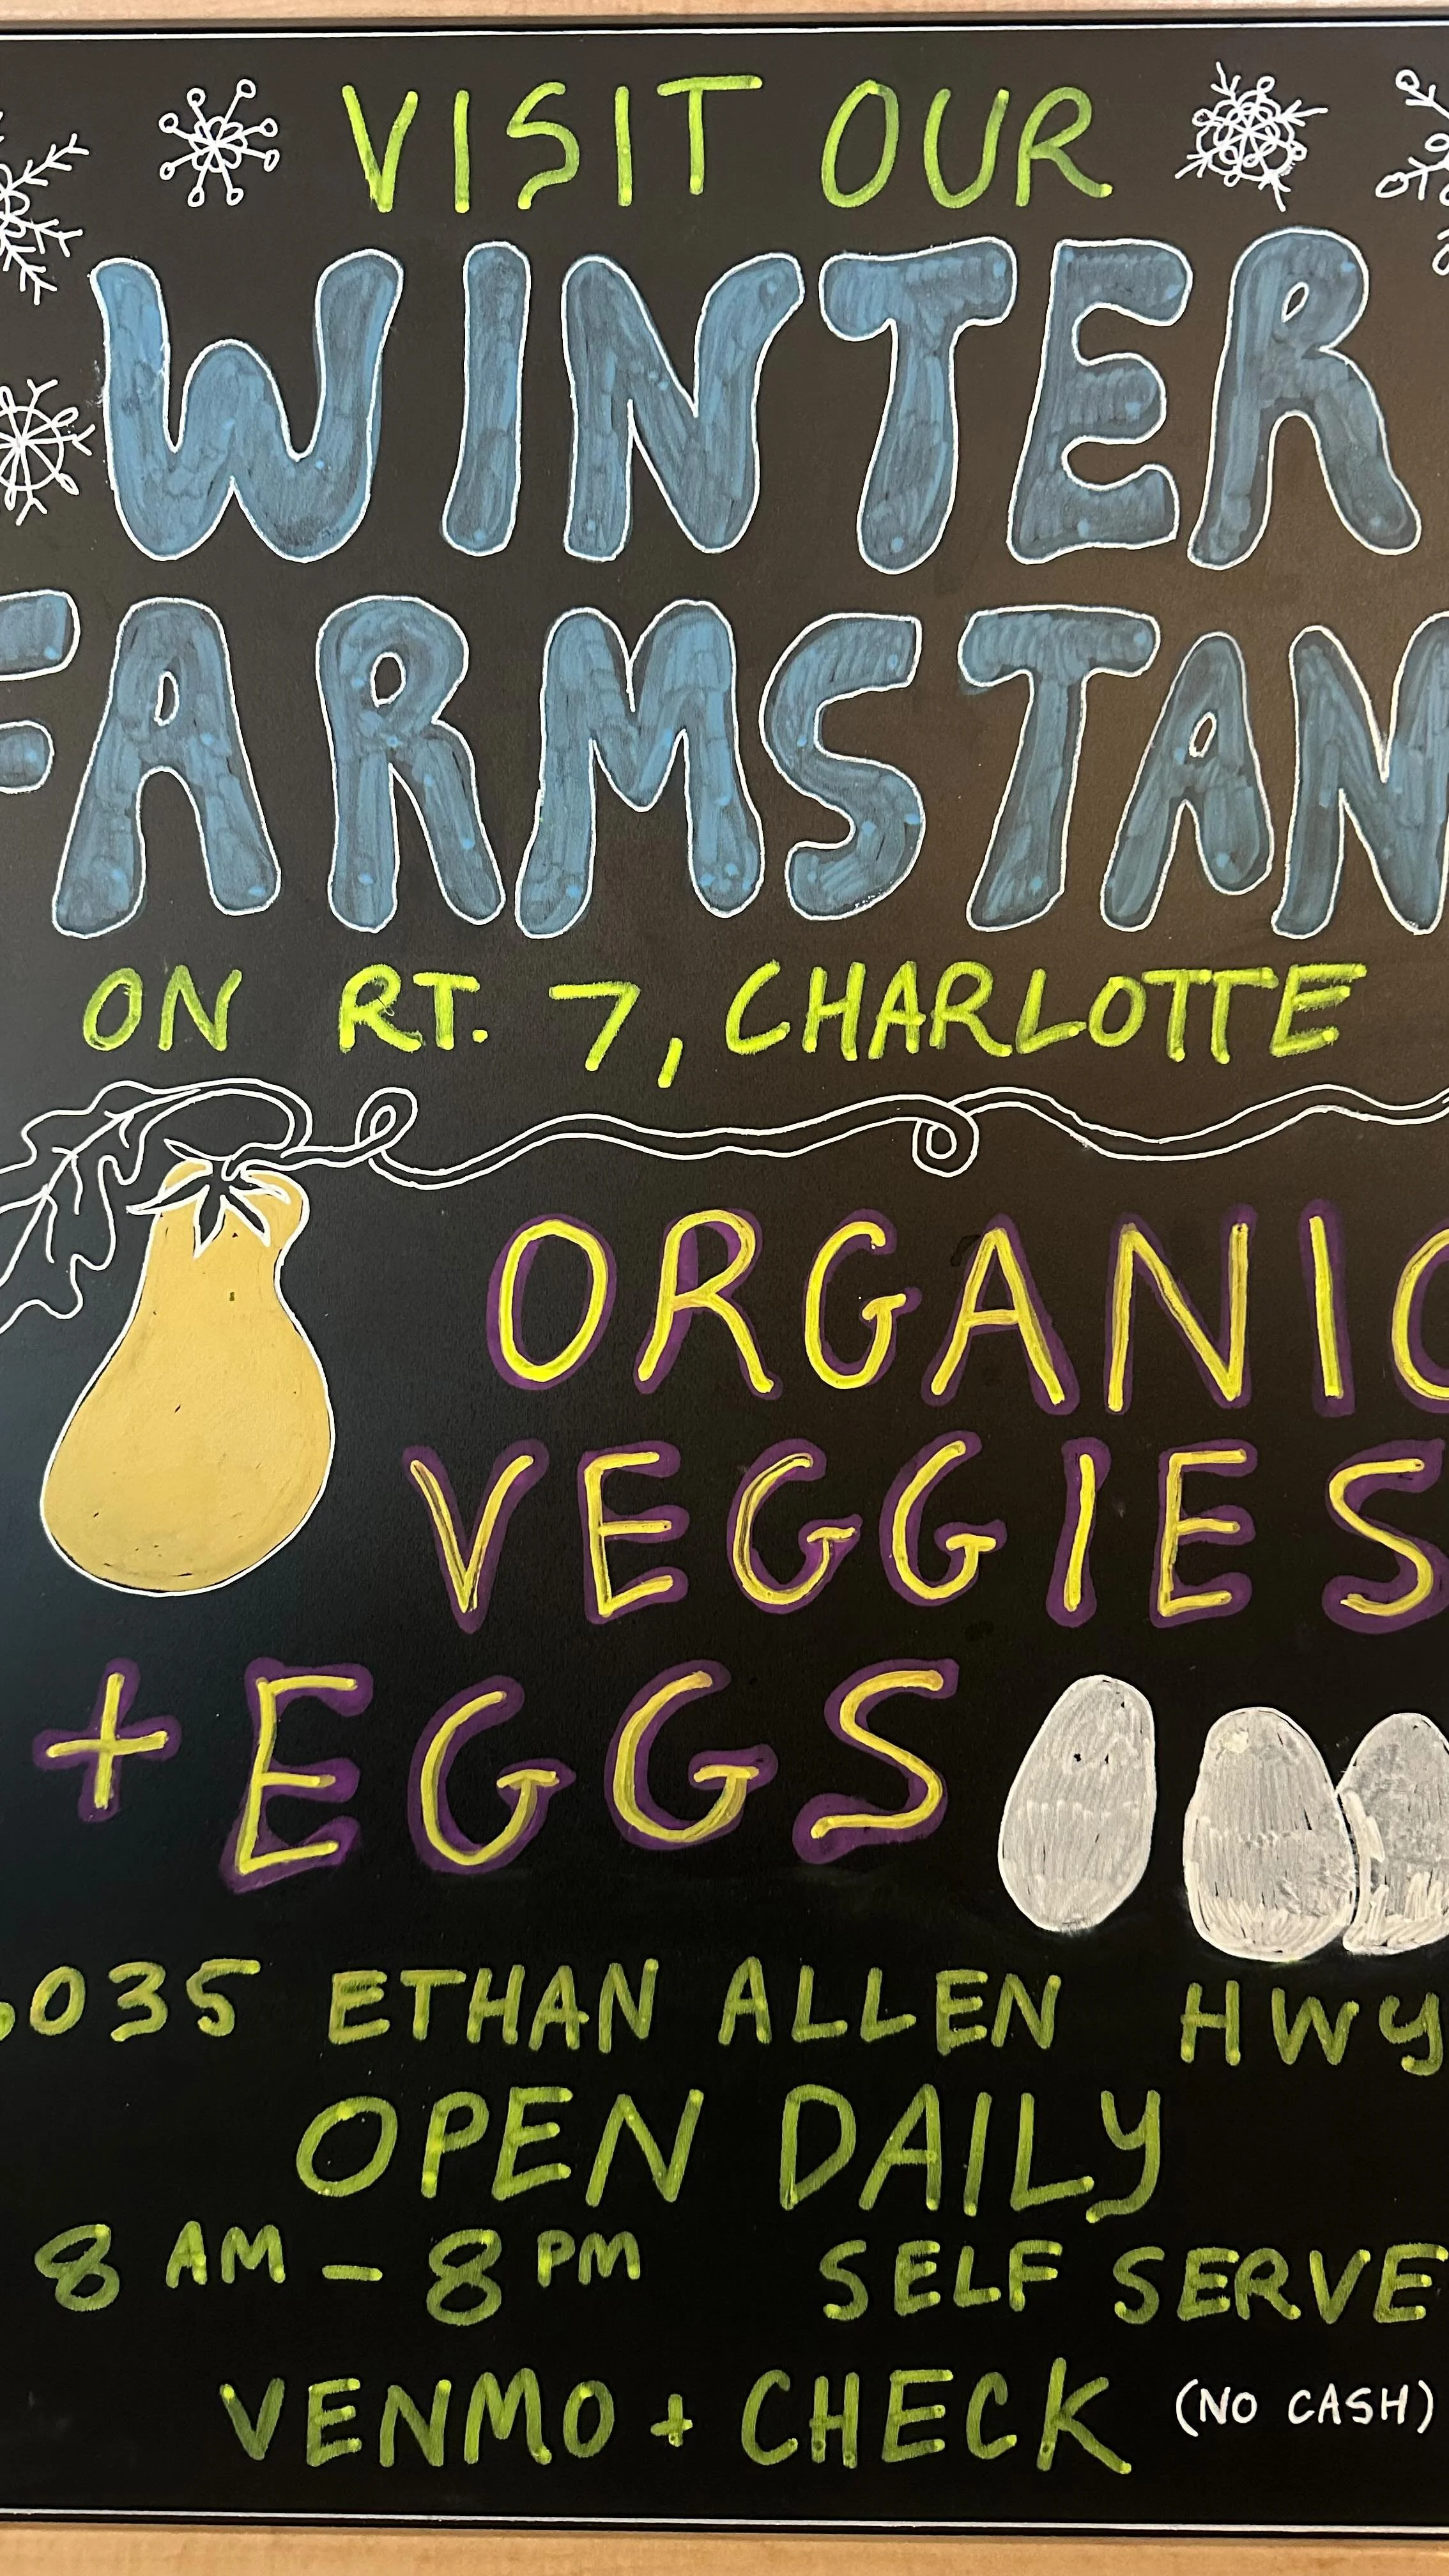 VISIT OUR
WINTER
FARMSTAN
ON RT. 7, CHARLOTTE
ORGANIC
VEGGIES
+ EGGS
035 ETHAN ALLEN HWY
OPEN DAILY
8 AM - 8 PM SELF SERVE
VENMO + CHECK (NO CASH)